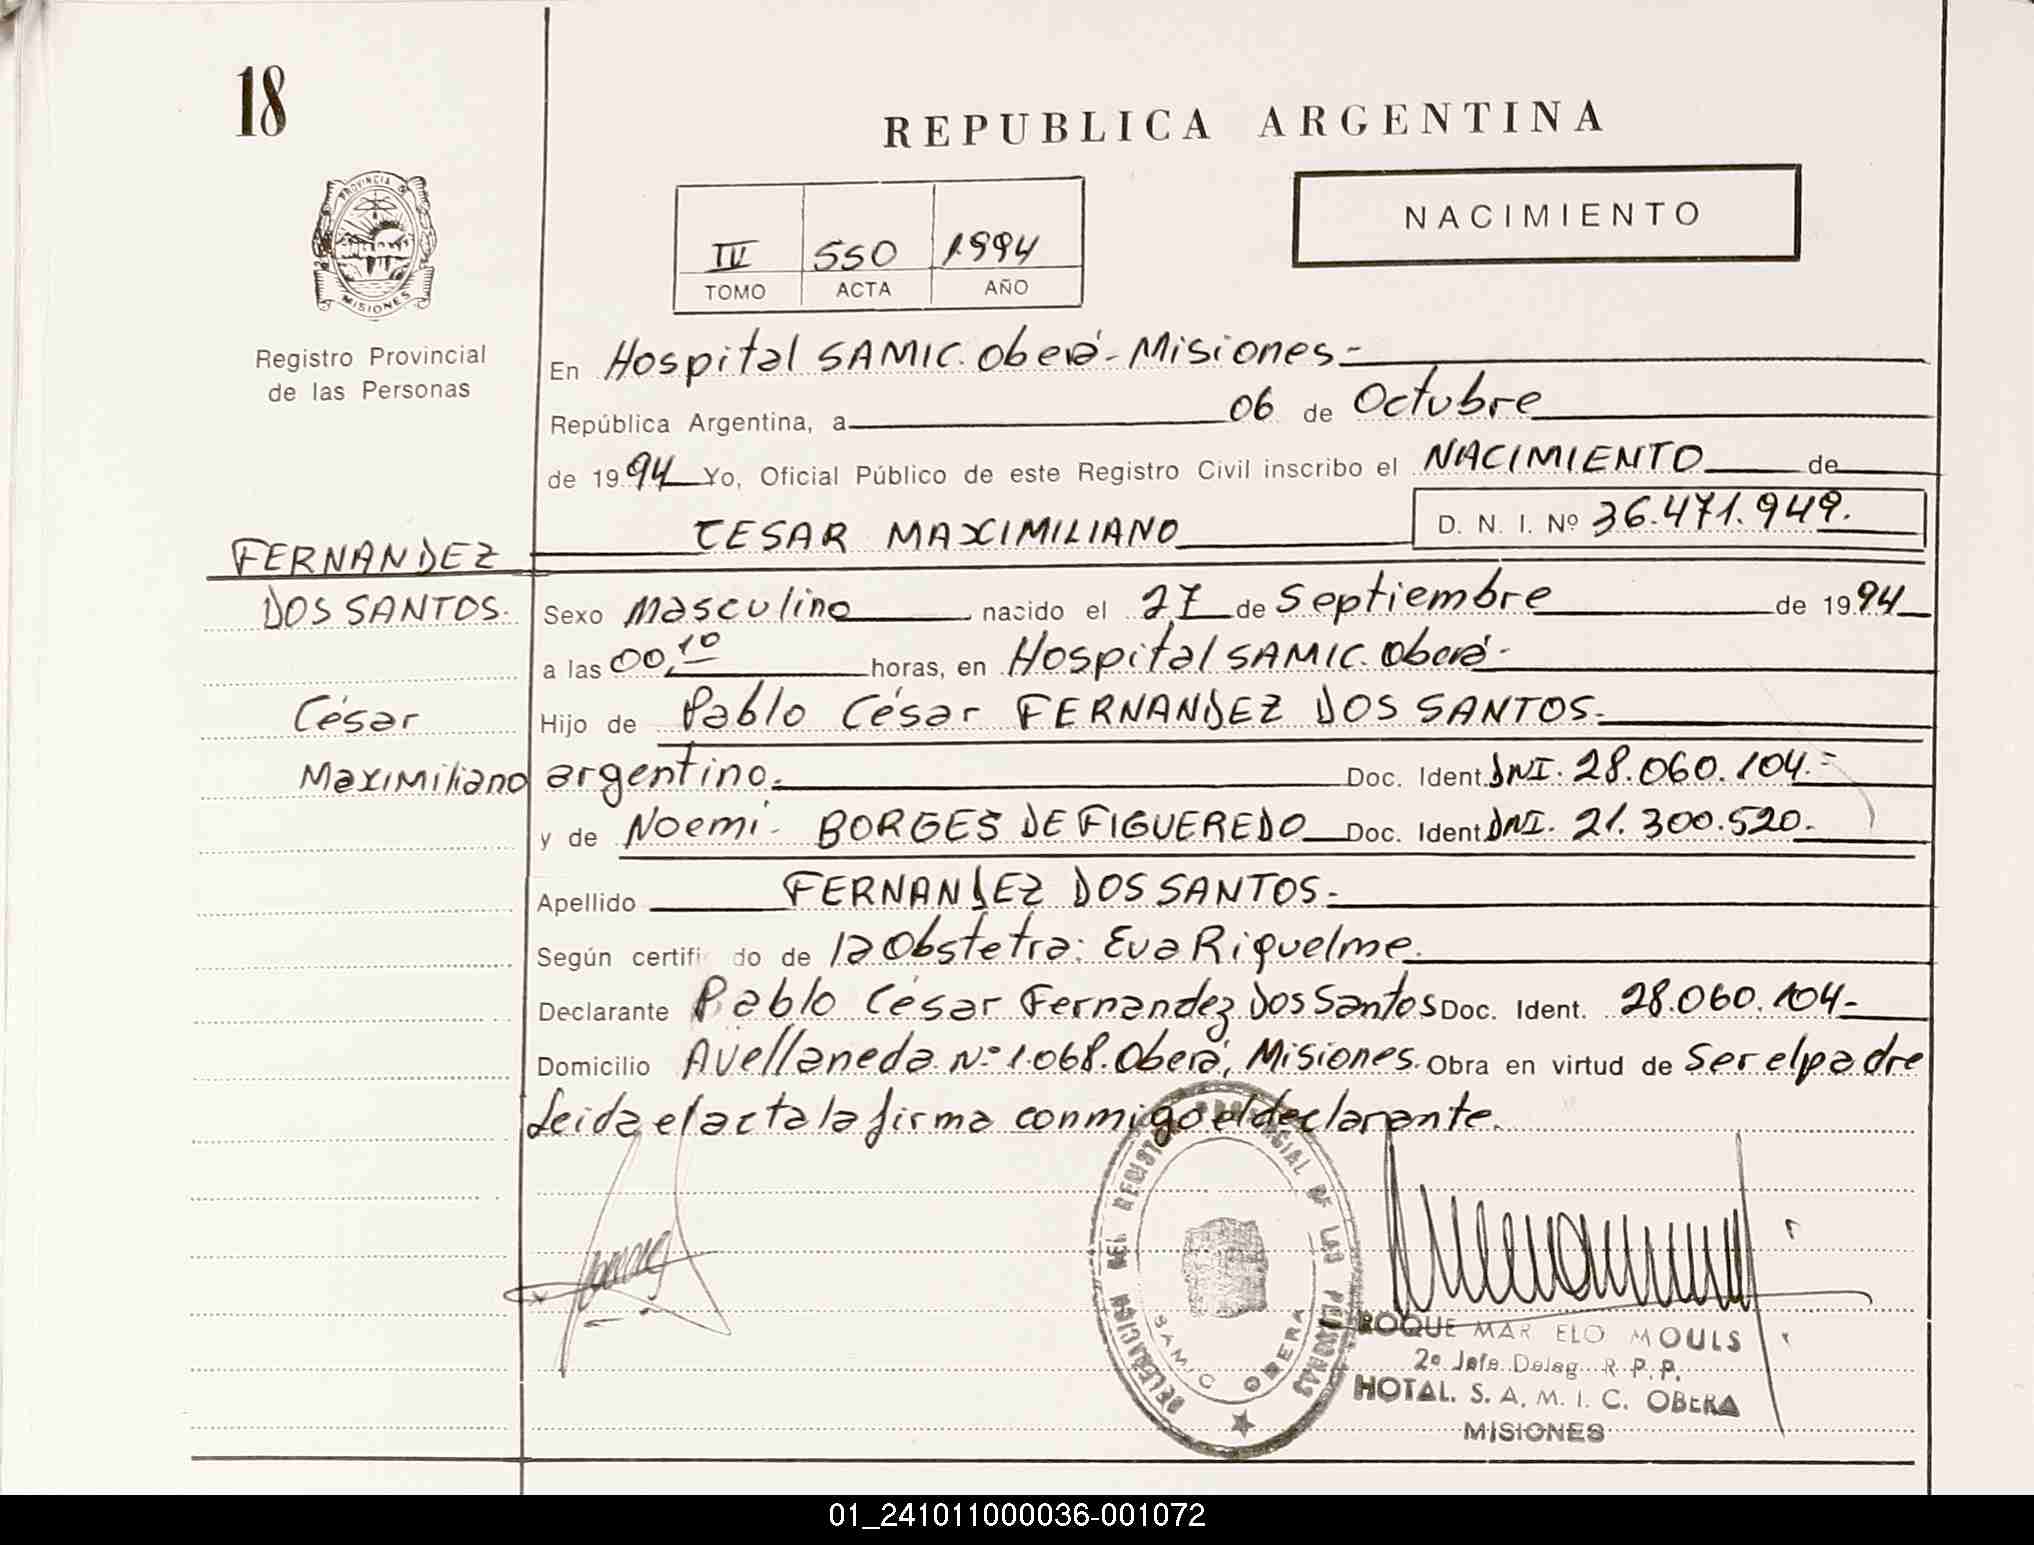 18
REPUBLICA ARGENTINA
NACIMIENTO
IV 550 1994
TOMO ACTA AÑO
PROVINCIA DE
MISIONES
Registro Provincial
de las Personas
En Hospital SAMIC. Oberá - Misiones -
República Argentina, a 06 de Octubre
de 1994 Yo, Oficial Público de este Registro Civil inscribo el NACIMIENTO de
CESAR MAXIMILIANO D. N. I. Nº 36.471.949.
FERNANDEZ
DOS SANTOS. Sexo Masculino nacido el 27 de Septiembre de 1994
a las 00,10 horas, en Hospital SAMIC. Oberá -
César Hijo de Pablo César FERNANDEZ DOS SANTOS.
Maximiliano argentino. Doc. Ident. DNI. 28.060.104.-
y de Noemí - BORGES DE FIGUEREDO Doc. Ident DNI. 21.300.520.
Apellido FERNANDEZ DOS SANTOS.-
Según certifi do de la Obstetra: Eva Riquelme.
Declarante Pablo César Fernandez Dos Santos Doc. Ident. 28.060.104-
Domicilio Avellaneda Nº 1.068. Oberá, Misiones. Obra en virtud de Ser el padre
Leida el acta la firma conmigo el declarante.
DELEGACION DEL REGISTRO PROVINCIAL DE LAS PERSONAS
SAMIC OBERA
ROQUE MAR ELO MOULS
2º Jefe Deleg. R. P. P.
HOTAL. S. A. M. I. C. OBERA
MISIONES
01_241011000036-001072